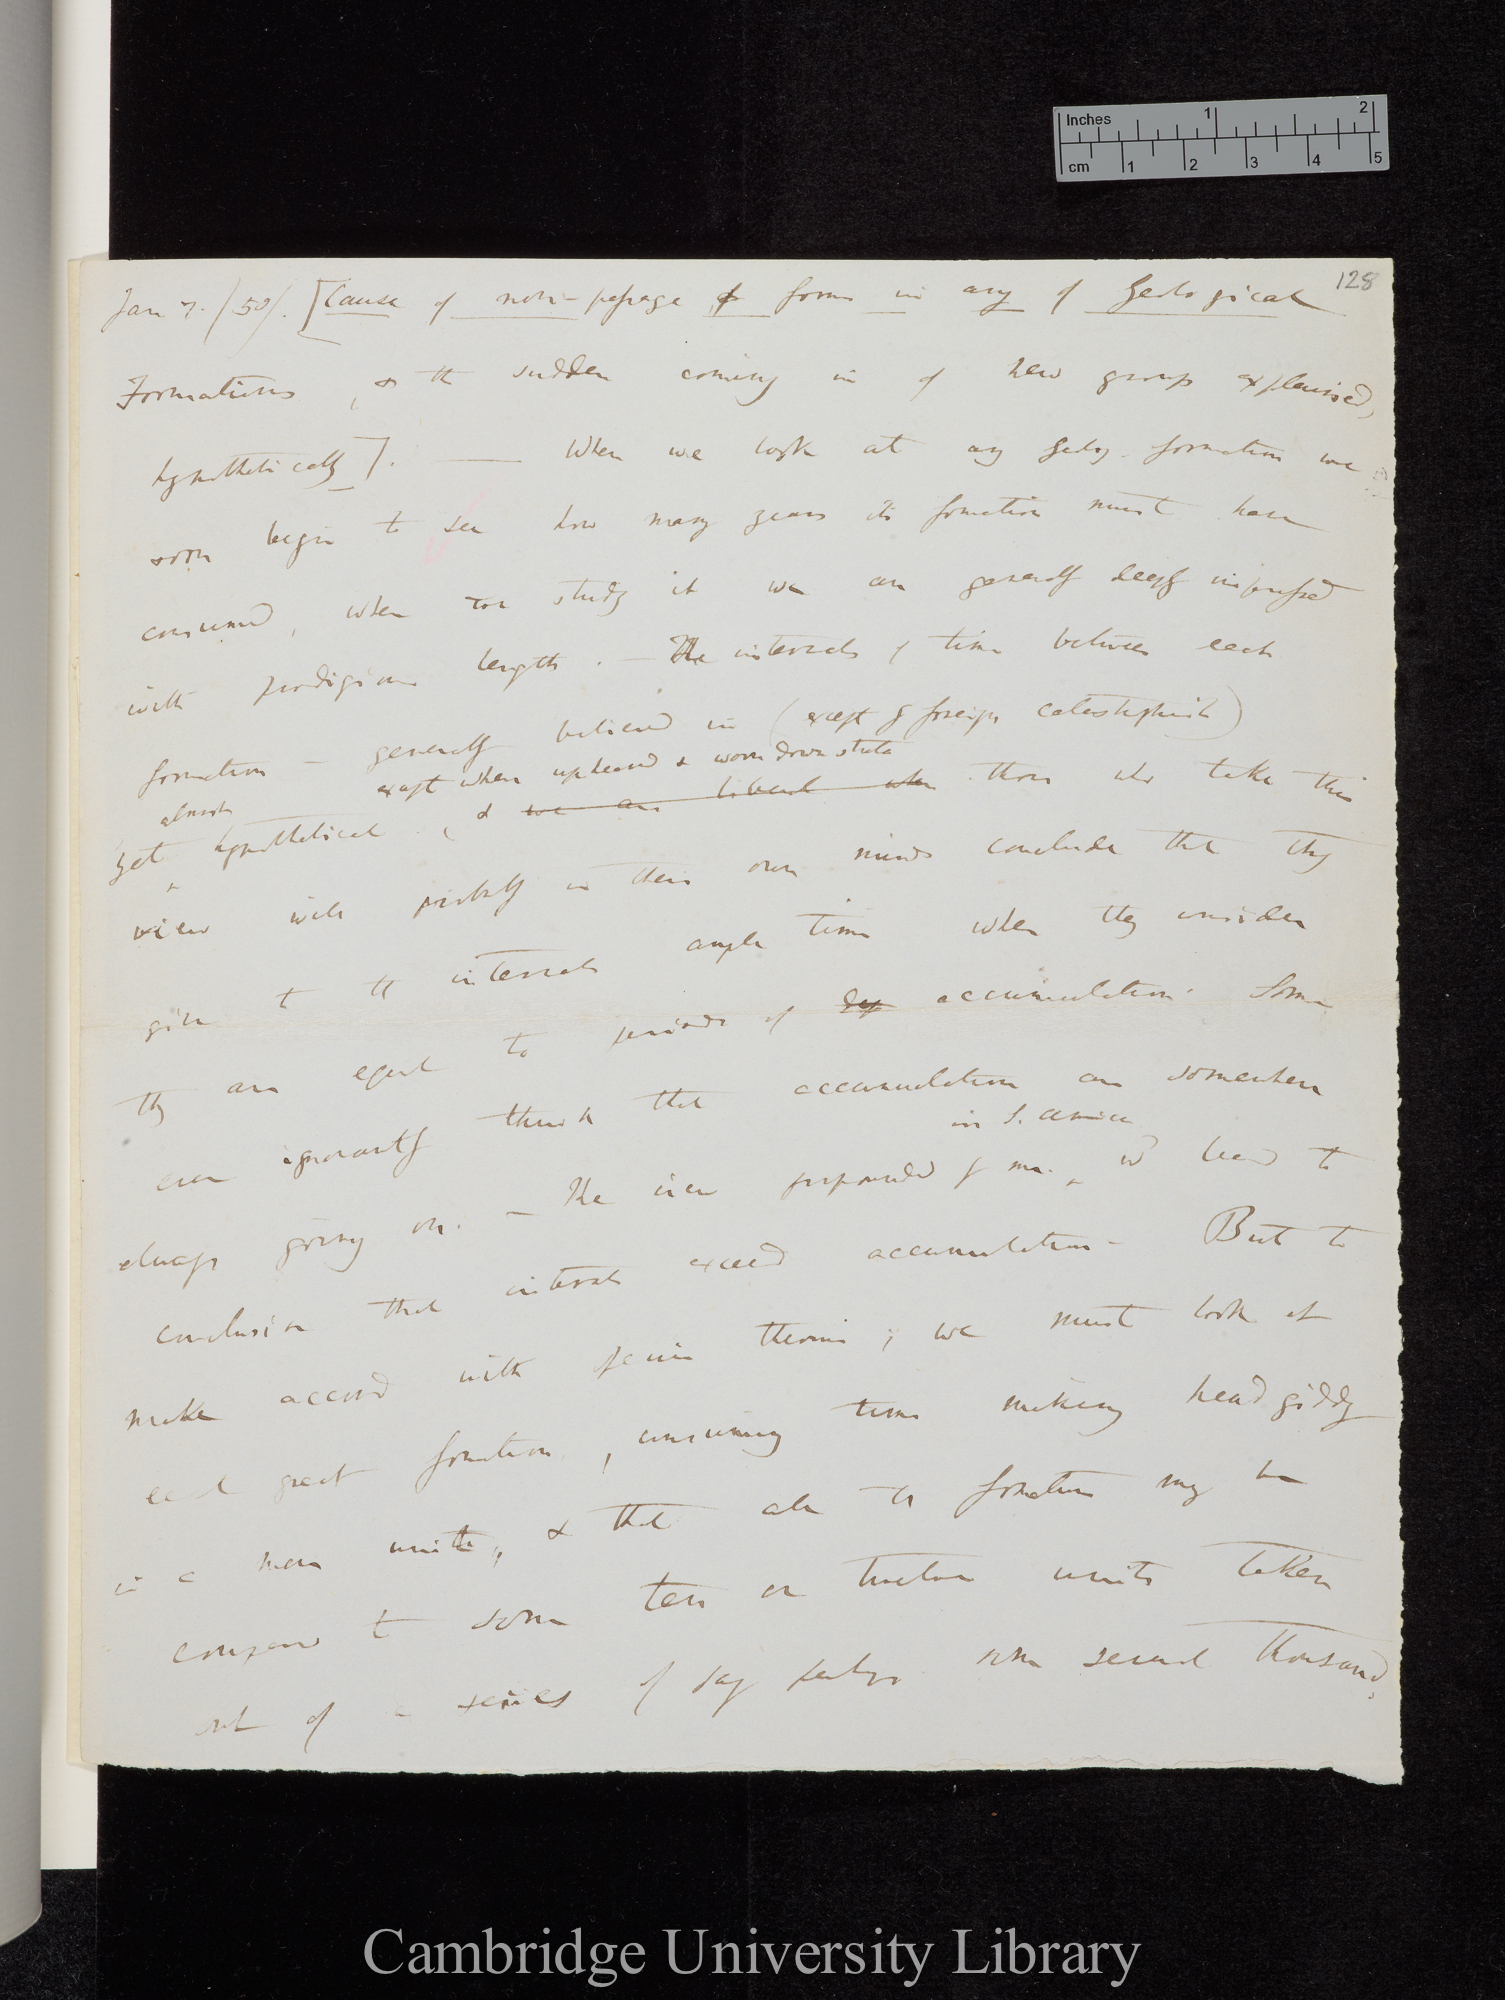 Inches 1 2
cm 1 2 3 4 5
128
Jan 7. /50/. [Cause of non-passage of forms in any of Geological
Formations, & the sudden coming in of new groups explained,
hypothetically]. — When we look at any Geolog. formation we
soon begin to see how many years its formation must have
consumed, when we study it we are generally deeply impressed
with prodigious length. — The intervals of time between each
formation — generally believed in (except by foreign catastrophists)
except when upheaved & worn down strata
almost
yet hypothetical, & we are liberal when those who take this
view will probably in their own minds conclude that they
give to the intervals ample time when they consider
they are equal to periods of dep accumulation. Some
even ignorantly think that accumulation are somewhere
in S. America
always going on. — The view propounded by me. wd lead to
conclusion that intervals exceed accumulation — But to
make accord with theories; we must look at
each great formation, consuming time making head giddy
in a mere unite, & that all the formations may be
compared to some ten or twelve units taken
out of a series of say perhaps some several thousand,
Cambridge University Library